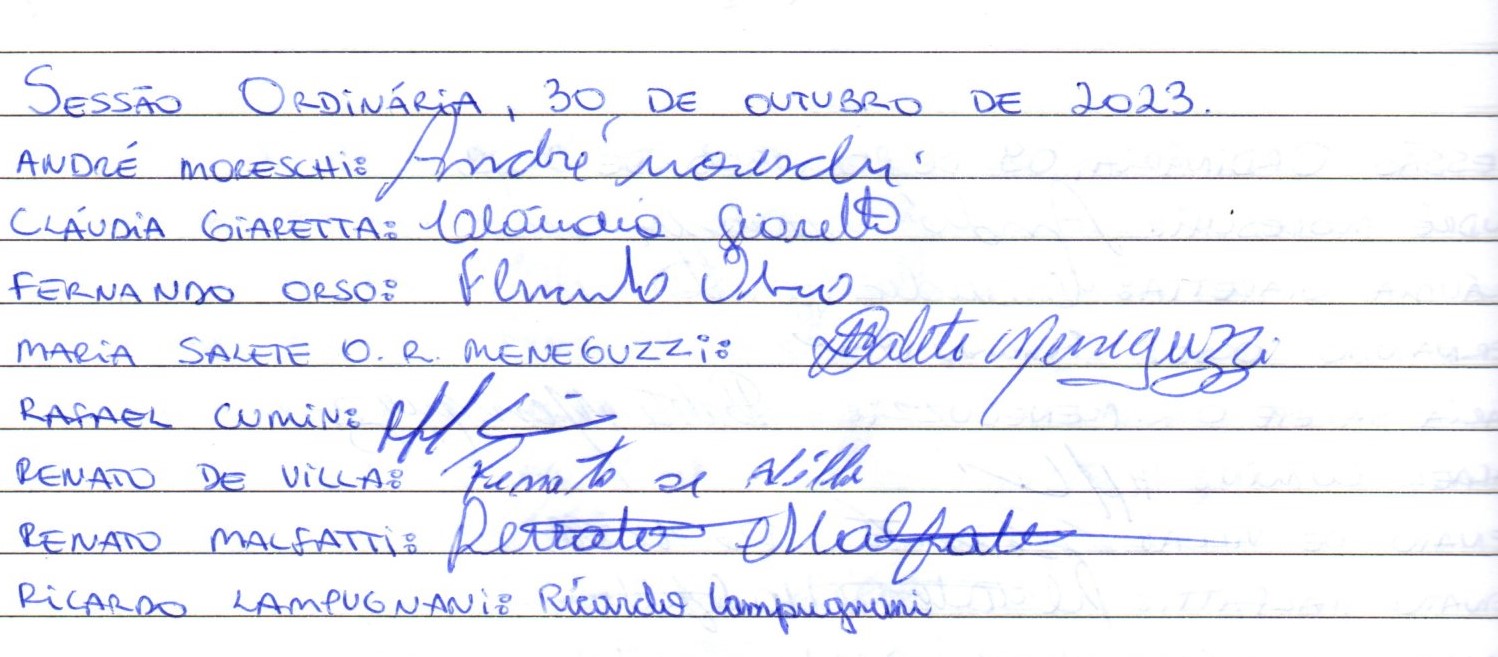 SESSÃO ORDINÁRIA, 30 DE OUTUBRO DE 2023.
ANDRÉ MORESCHI: André Moreschi
CLÁUDIA GIARETTA: Cláudia Giaretta
FERNANDO ORSO: Fernando Orso
MARIA SALETE O. R. MENEGUZZI: Salete Meneguzzi
RAFAEL CUMIN:
RENATO DE VILLA: Renato de Villa
RENATO MALFATTI: Renato Malfatti
RICARDO LAMPUGNANI: Ricardo Lampugnani